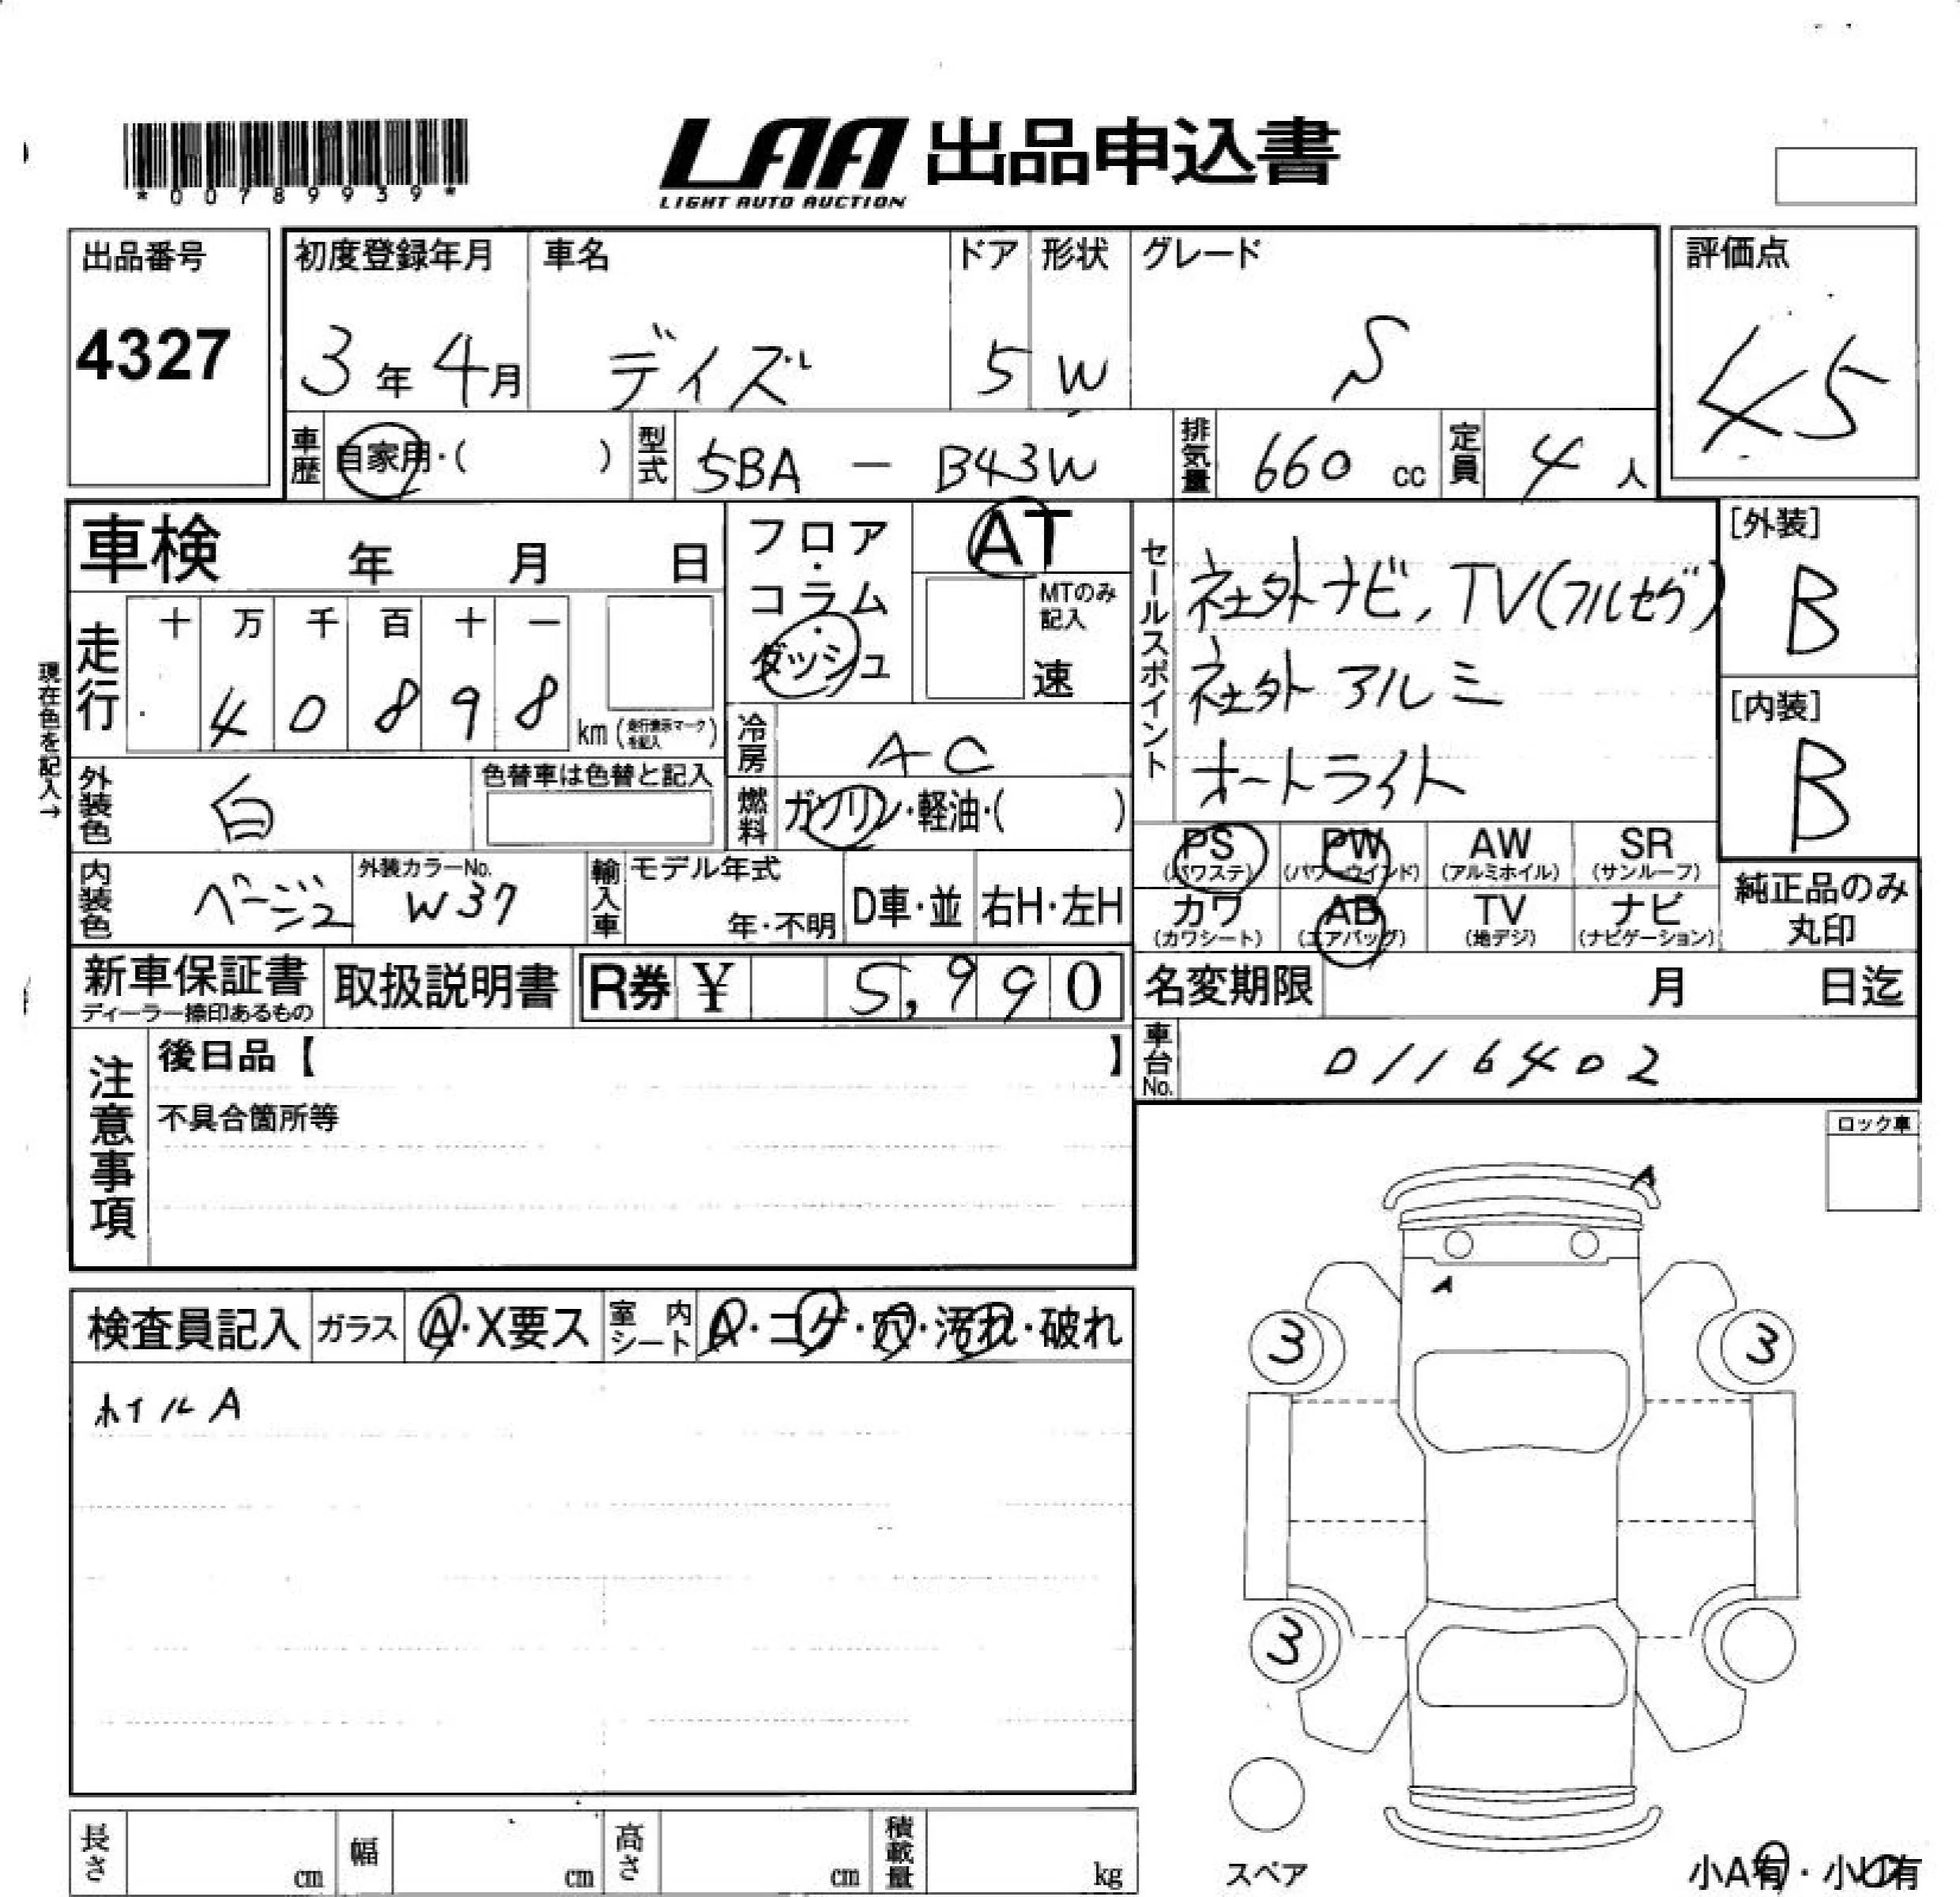 *0078993 9*
LAA 出品申込書
LIGHT AUTO AUCTION
出品番号
4327
初度登録年月
3年4月
車名
デイズ
ドア
5
形状
W
グレード
S
評価点
45
車歴
自家用・( )
型式
5BA - B43W
排気量
660 cc
定員
4人
車検 年 月 日
フロア・コラム・ダッシュ
AT
MTのみ記入
速
走行
十 万 千 百 十 一
4 0 8 9 8
km(走行表示マークを記入)
現在色を記入→
冷房
AC
外装色
白
色替車は色替と記入
燃料
ガソリン・軽油・( )
内装色
ベージュ
外装カラーNo.
W37
輸入車
モデル年式
年・不明
D車・並
右H・左H
セールスポイント
社外ナビ, TV(フルセグ)
社外アルミ
オートライト
[外装]
B
[内装]
B
PS (パワステ)
PW (パワーウインド)
AW (アルミホイル)
SR (サンルーフ)
カワ (カワシート)
AB (エアバッグ)
TV (地デジ)
ナビ (ナビゲーション)
純正品のみ丸印
新車保証書
ディーラー捺印あるもの
取扱説明書
R券 ¥ 5,990
名変期限 月 日迄
車台No.
0116402
注意事項
後日品【 】
不具合箇所等
ロック車
検査員記入
ガラス
A・X要ス
室内シート
A・コゲ・穴・汚れ・破れ
ホイルA
A
A
3
3
3
スペア
小A有・小U有
長さ cm
幅 cm
高さ cm
積載量 kg